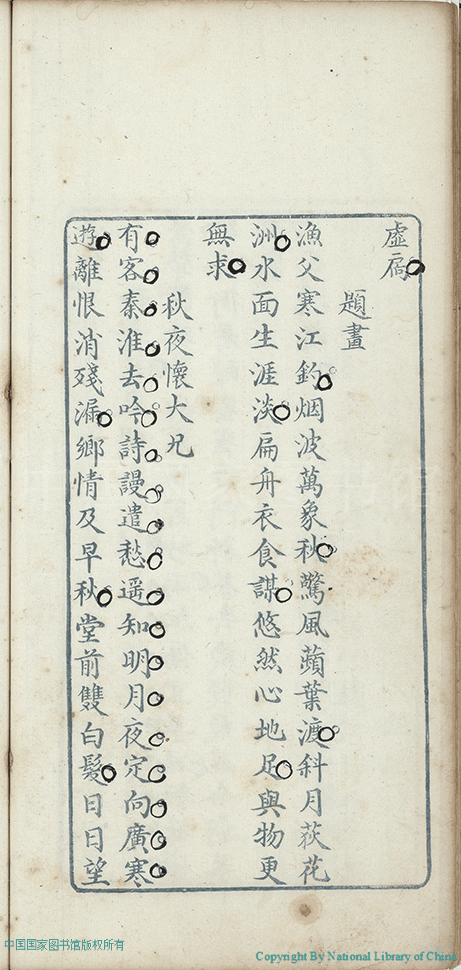 虛扄
題畫
漁父寒江釣烟波萬象秋驚風蘋葉渡斜月荻花
洲水面生涯淡扁舟衣食謀悠然心地足與物更
無求
秋夜懷大兄
有客秦淮去吟詩謾遣愁遥知明月夜定向廣寒
遊離恨消殘漏鄉情及早秋堂前雙白髮日日望
中国国家图书馆版权所有
Copyright By National Library of China